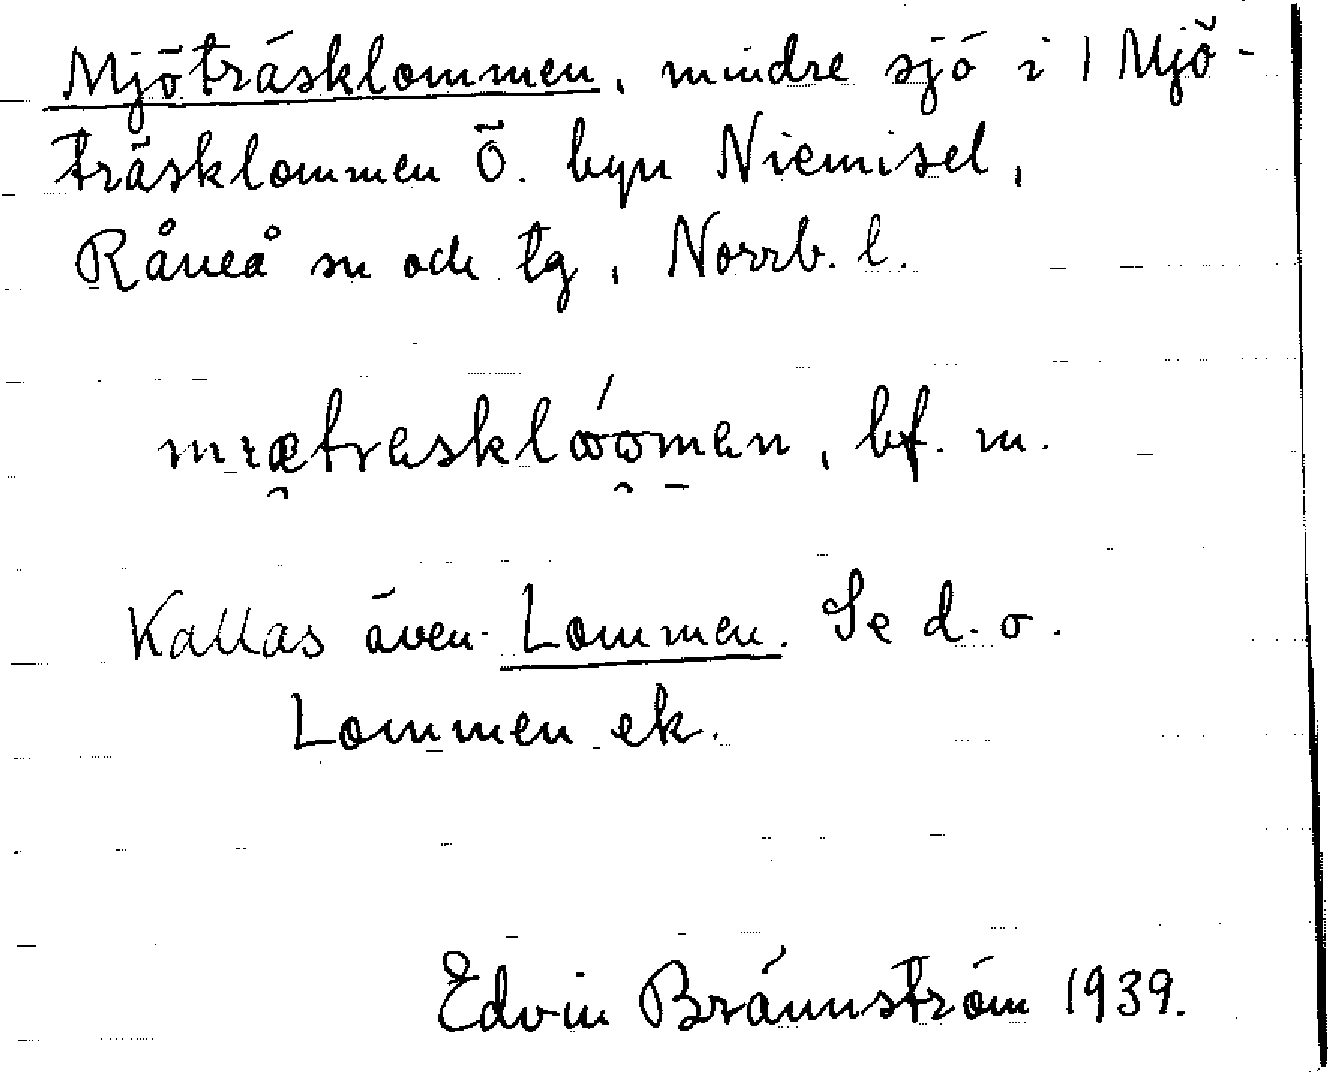 Mjöträsklommen, mindre sjö i 1 Mjö-
träsklommen Ö. byn Niemisel,
Råneå sn och tg, Norrb. l.
bf. m.
Kallas även Lommen. Se d. o.
Lommen ek.
Edvin Brännström 1939.